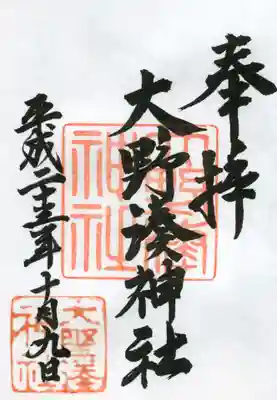 奉拝
大野湊神社
平成二十三年十月九日